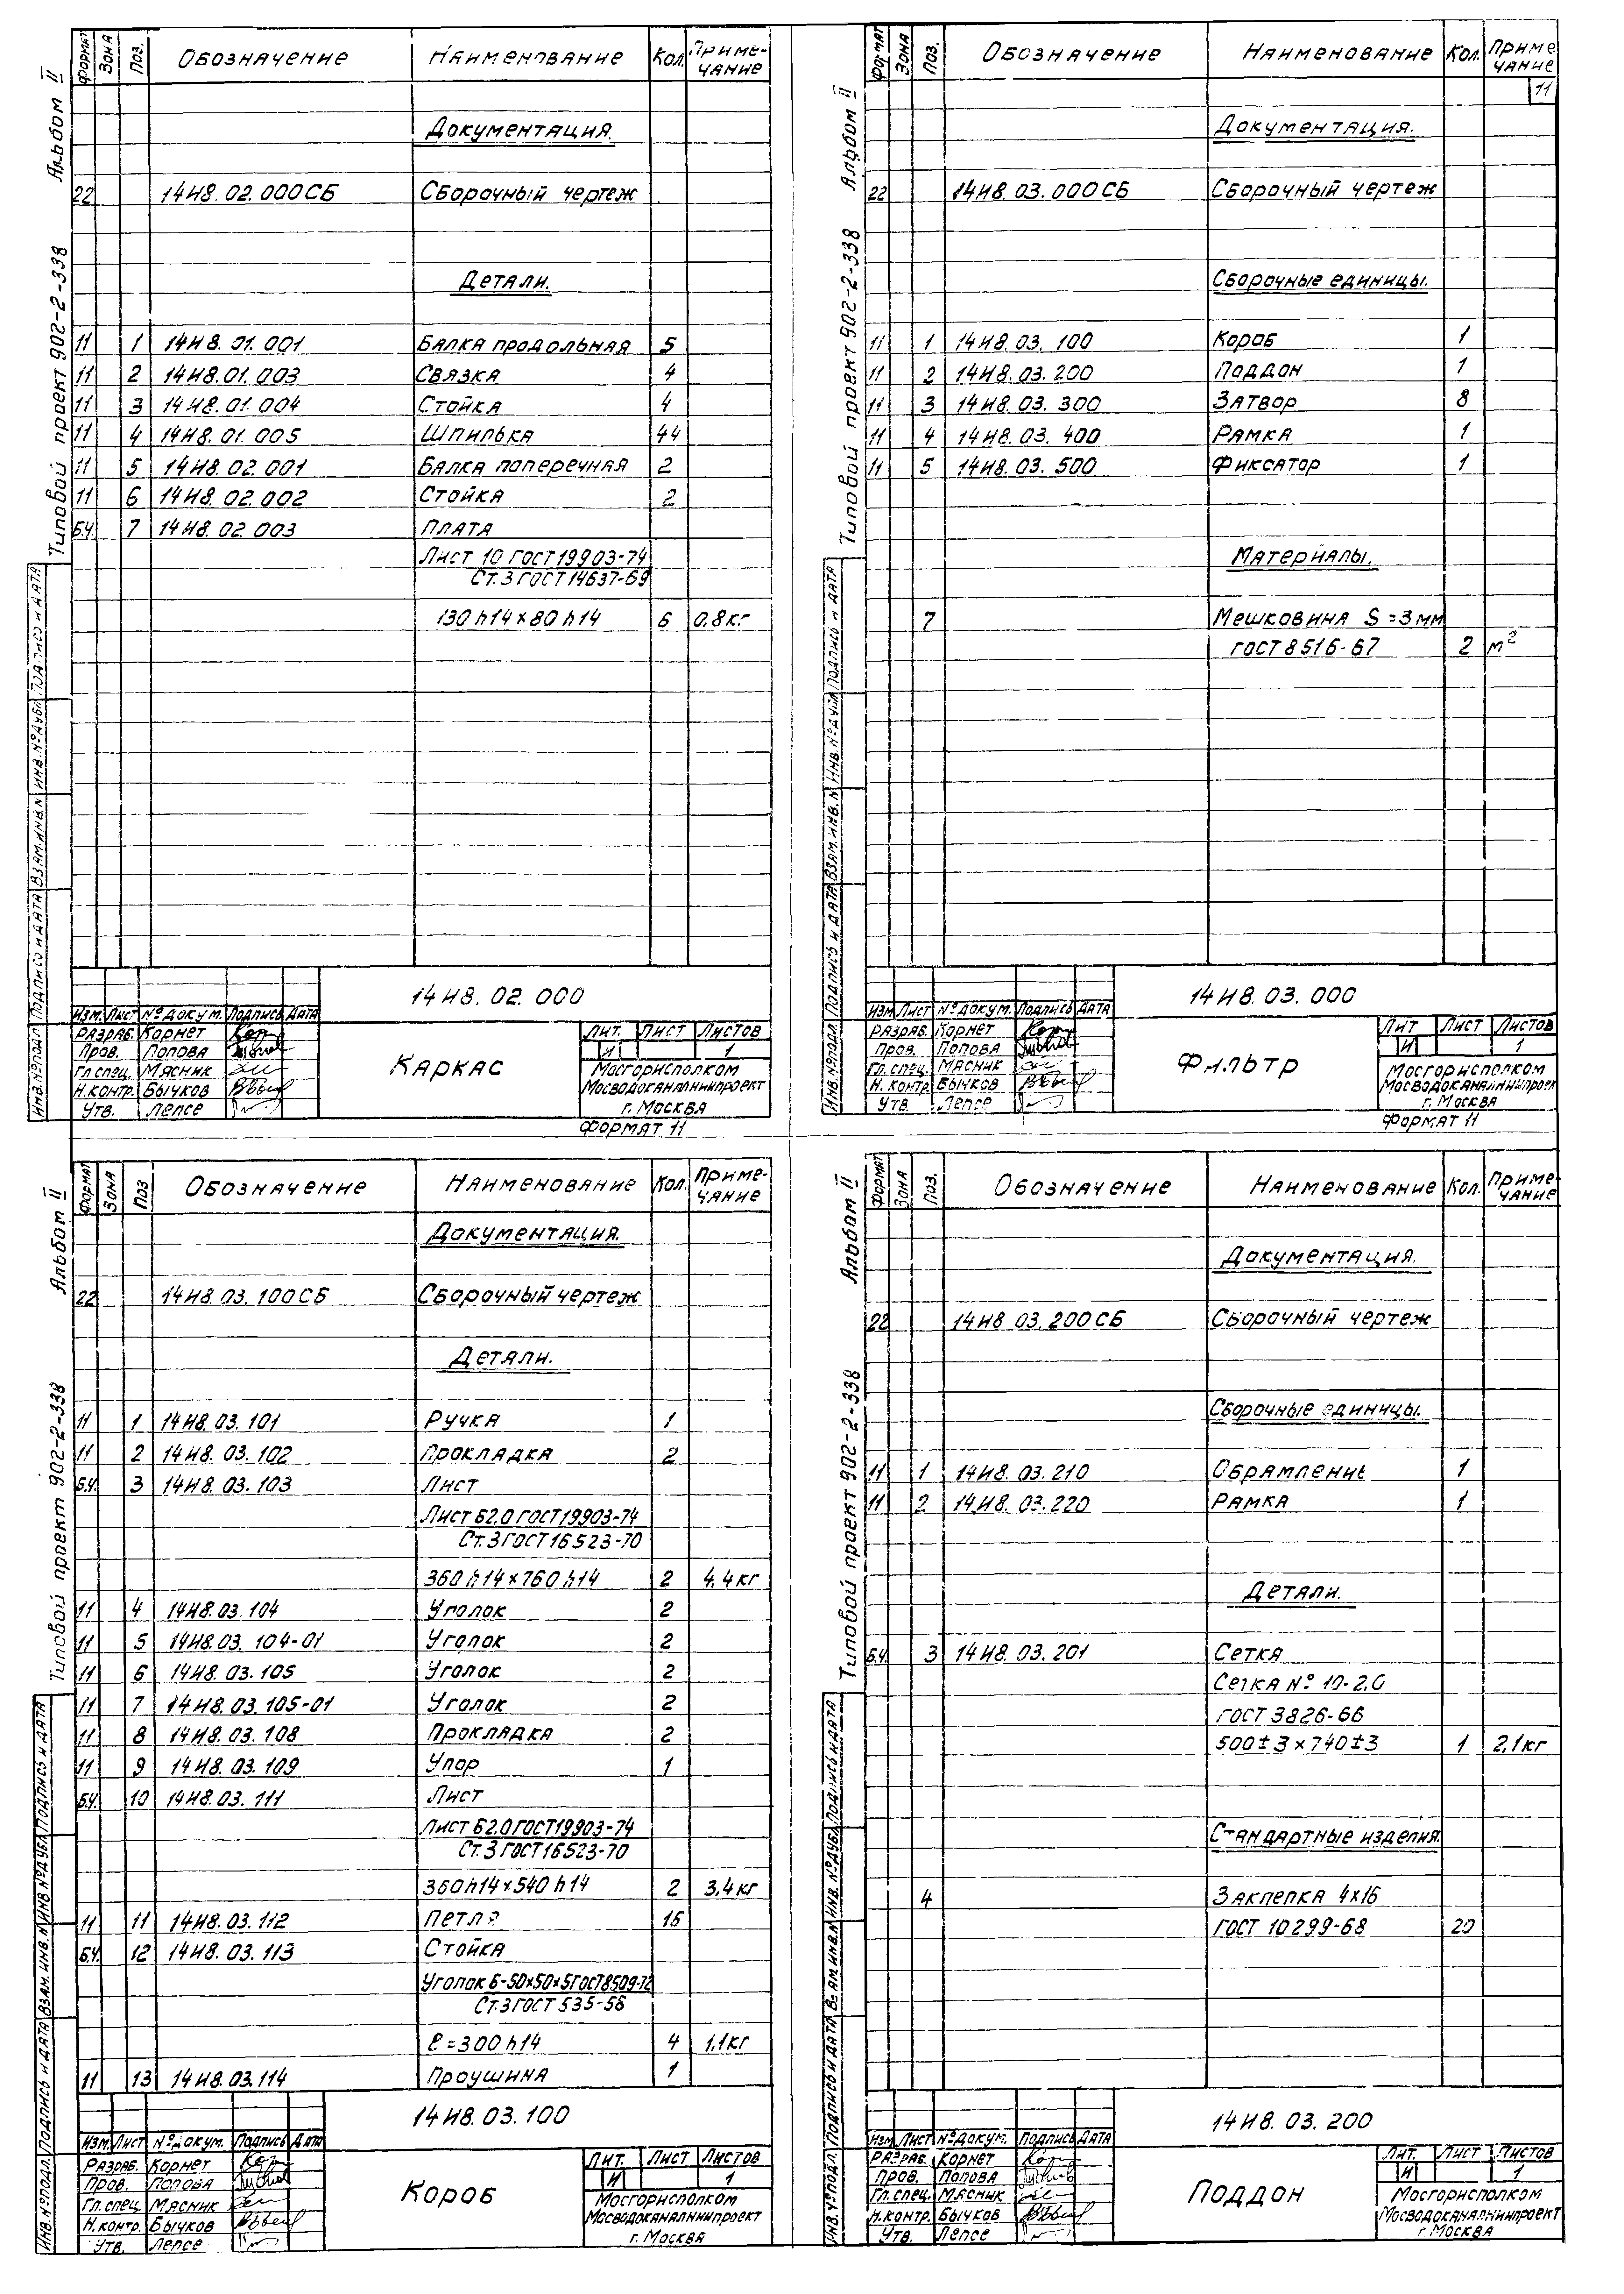 Формат Зона Поз. Обозначение Наименование Кол. Приме-
чание
Документация.
22 14И8.02.000СБ Сборочный чертеж
Детали.
11 1 14И8.01.001 Балка продольная 5
11 2 14И8.01.003 Связка 4
11 3 14И8.01.004 Стойка 4
11 4 14И8.01.005 Шпилька 44
11 5 14И8.02.001 Балка поперечная 2
11 6 14И8.02.002 Стойка 2
Б.Ч. 7 14И8.02.003 Плата
Лист 10 ГОСТ 19903-74
Ст.3 ГОСТ 14637-69
130 h14 × 80 h14 6 0,8кг
14И8.02.000
Изм. Лист № докум. Подпись Дата
Разраб. Корнет
Пров. Попова
Гл.спец. Мясник
Н.контр. Бычков
Утв. Лепсе
Каркас
Лит. Лист Листов
И 1
Мосгорисполком
Мосводоканалниипроект
г. Москва
Формат 11
Альбом II
Типовой проект 902-2-338
Инв.№подл. Подпись и дата Взам.инв.№ Инв.№дубл. Подпись и дата
Формат Зона Поз. Обозначение Наименование Кол. Приме
чание
11
Документация.
22 14И8.03.000СБ Сборочный чертеж
Сборочные единицы.
11 1 14И8.03.100 Короб 1
11 2 14И8.03.200 Поддон 1
11 3 14И8.03.300 Затвор 8
11 4 14И8.03.400 Рамка 1
11 5 14И8.03.500 Фиксатор 1
Материалы.
7 Мешковина S=3мм
ГОСТ 8516-67 2 м²
14И8.03.000
Изм Лист № докум. Подпись Дата
Разраб. Корнет
Пров. Попова
Гл.спец. Мясник
Н.контр. Бычков
Утв. Лепсе
Фильтр
Лит Лист Листов
И 1
Мосгорисполком
Мосводоканалниипроек
г. Москва
Формат 11
Альбом II
Типовой проект 902-2-338
Инв.№подл. Подпись и дата Взам.инв.№ Инв.№дубл Подпись и дата
Формат Зона Поз Обозначение Наименование Кол. Приме-
чание
Документация.
22 14И8.03.100СБ Сборочный чертеж
Детали.
11 1 14И8.03.101 Ручка 1
11 2 14И8.03.102 Прокладка 2
Б.Ч. 3 14И8.03.103 Лист
Лист Б2.0 ГОСТ19903-74
Ст.3 ГОСТ16523-70
360 h14 × 760 h14 2 4,4кг
11 4 14И8.03.104 Уголок 2
11 5 14И8.03.104-01 Уголок 2
11 6 14И8.03.105 Уголок 2
11 7 14И8.03.105-01 Уголок 2
11 8 14И8.03.108 Прокладка 2
11 9 14И8.03.109 Упор 1
Б.Ч. 10 14И8.03.111 Лист
Лист Б2.0 ГОСТ19903-74
Ст.3 ГОСТ16523-70
360h14×540h14 2 3,4кг
11 11 14И8.03.112 Петля 16
Б.Ч. 12 14И8.03.113 Стойка
Уголок Б-50×50×5ГОСТ8509-72
Ст.3 ГОСТ 535-58
ℓ=300h14 4 1,1кг
11 13 14И8.03.114 Проушина 1
14И8.03.100
Изм. Лист № докум. Подпись Дата
Разраб. Корнет
Пров. Попова
Гл.спец Мясник
Н.контр. Бычков
Утв. Лепсе
Короб
Лит. Лист Листов
И 1
Мосгорисполком
Мосводоканалниипроект
г. Москва
Альбом II
Типовой проект 902-2-338
Инв.№подл. Подпись и дата Взам.инв.№ Инв №дубл Подпись и дата
Формат Зона Поз. Обозначение Наименование Кол. Приме-
чание
Документация.
22 14И8.03.200СБ Сборочный чертеж
Сборочные единицы.
11 1 14И8.03.210 Обрамление 1
11 2 14И8.03.220 Рамка 1
Детали.
Б.Ч. 3 14И8.03.201 Сетка
Сетка № 10-2,0
ГОСТ 3826-66
500±3×740±3 1 2,1кг
Стандартные изделия.
4 Заклепка 4×16
ГОСТ 10299-68 20
14И8.03.200
Изм Лист № докум. Подпись Дата
Разраб. Корнет
Пров. Попова
Гл.спец. Мясник
Н.контр. Бычков
Утв. Лепсе
Поддон
Лит. Лист Листов
И 1
Мосгорисполком
Мосводоканалниипроект
г. Москва
Альбом II
Типовой проект 902-2-338
Инв.№подл. Подпись и дата Взам.инв.№ Инв. №дубл Подпись и дата